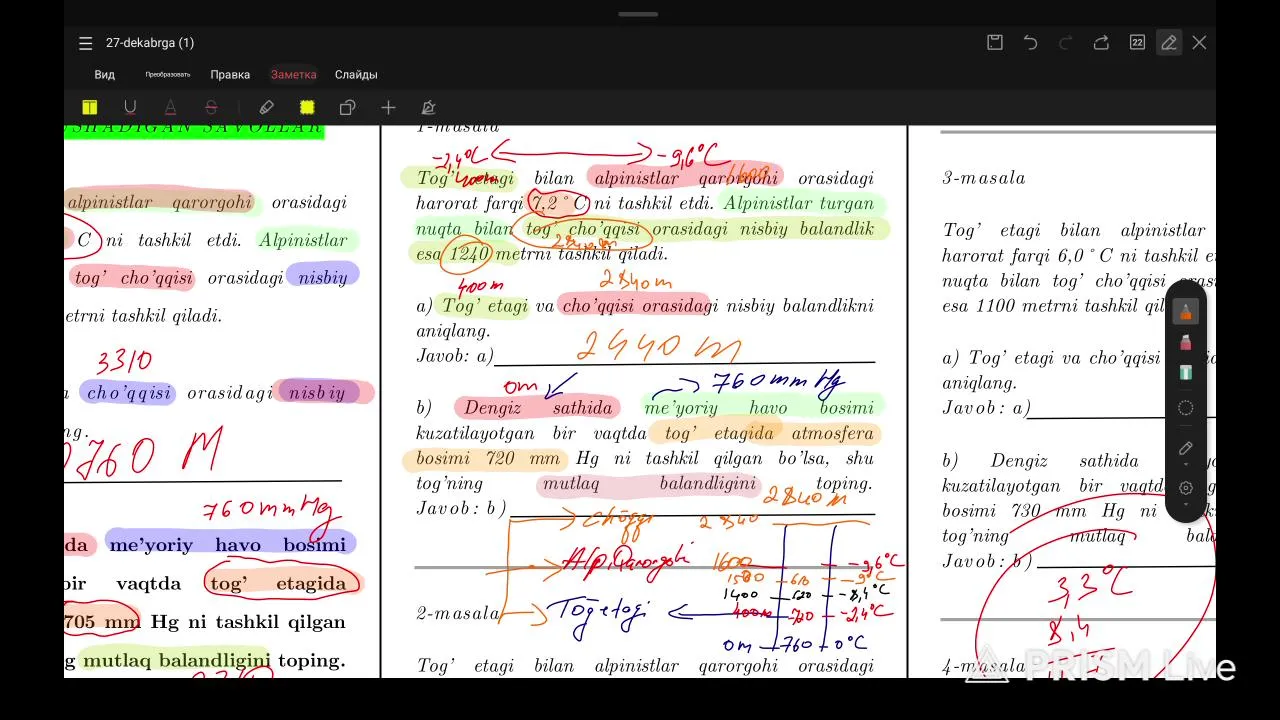 27-dekabrga (1)
22
Вид
Преобразовать
Правка
Заметка
Слайды
SHADIGAN SAVOLLAR
alpinistlar qarorgohi orasidagi
C ni tashkil etdi. Alpinistlar
tog' cho'qqisi orasidagi nisbiy
etrni tashkil qiladi.
3310
cho'qqisi orasidagi nisbiy
ng.
0760 M
760 mm Hg
da me'yoriy havo bosimi
bir vaqtda tog' etagida
705 mm Hg ni tashkil qilgan
g mutlaq balandligini toping.
1-masala
-2,4°C
-9,6°C
400m
1600
Tog' etagi bilan alpinistlar qarorgohi orasidagi
harorat farqi 7,2°C ni tashkil etdi. Alpinistlar turgan
nuqta bilan tog' cho'qqisi orasidagi nisbiy balandlik
2840 m
esa 1240 metrni tashkil qiladi.
400m
2840m
a) Tog' etagi va cho'qqisi orasidagi nisbiy balandlikni
aniqlang.
Javob: a)
2440 m
0m
760 mm Hg
b) Dengiz sathida me'yoriy havo bosimi
kuzatilayotgan bir vaqtda tog' etagida atmosfera
bosimi 720 mm Hg ni tashkil qilgan bo'lsa, shu
tog'ning mutlaq balandligini toping.
2840 m
Javob: b)
cho'qqi
2840
Alp.Qarorgohi
1600
-9,6°C
1500
-610
-9°C
1400
-620
-8,4°C
Tog etagi
400m
-720
-2,4°C
0m
-760
0°C
2-masala
Tog' etagi bilan alpinistlar qarorgohi orasidagi
3-masala
Tog' etagi bilan alpinistlar
harorat farqi 6,0°C ni tashkil e
nuqta bilan tog' cho'qqisi
esa 1100 metrni tashkil qil
a) Tog' etagi va cho'qqisi
aniqlang.
Javob: a)
b) Dengiz sathida
kuzatilayotgan bir vaqtd
bosimi 730 mm Hg ni
tog'ning mutlaq bal
Javob: b)
3,3°C
8,4
4-masala
PRISM Live